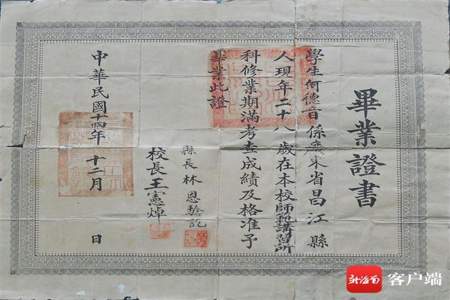 畢業證書
學生何德音係廣東省昌江縣
人現年二十八歲在本校師範講習所
科修業期滿考查成績及格准予
畢業此證
縣長林恩
校長王憲焯
中華民國十四年十二月 日
新海南
客户端